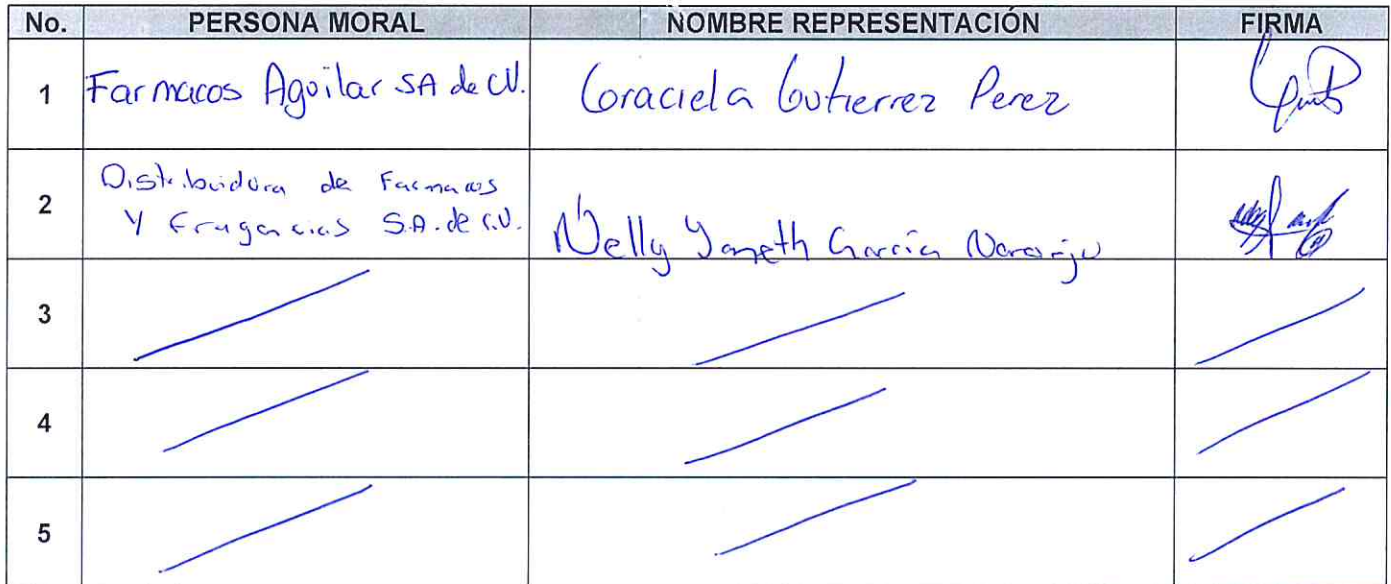 No. PERSONA MORAL NOMBRE REPRESENTACIÓN FIRMA
1 Farmacos Aguilar SA de CV. Graciela Gutierrez Perez
Distribuidora de Farmacos
2 Y Fragancias S.A. de C.V. Nelly Yaneth García Naranjo
3
4
5